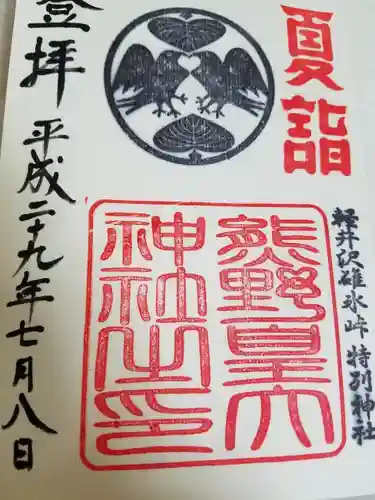 夏詣
軽井沢碓氷峠 特別神社
熊野皇大
神社之印
登拝
平成二十九年七月八日